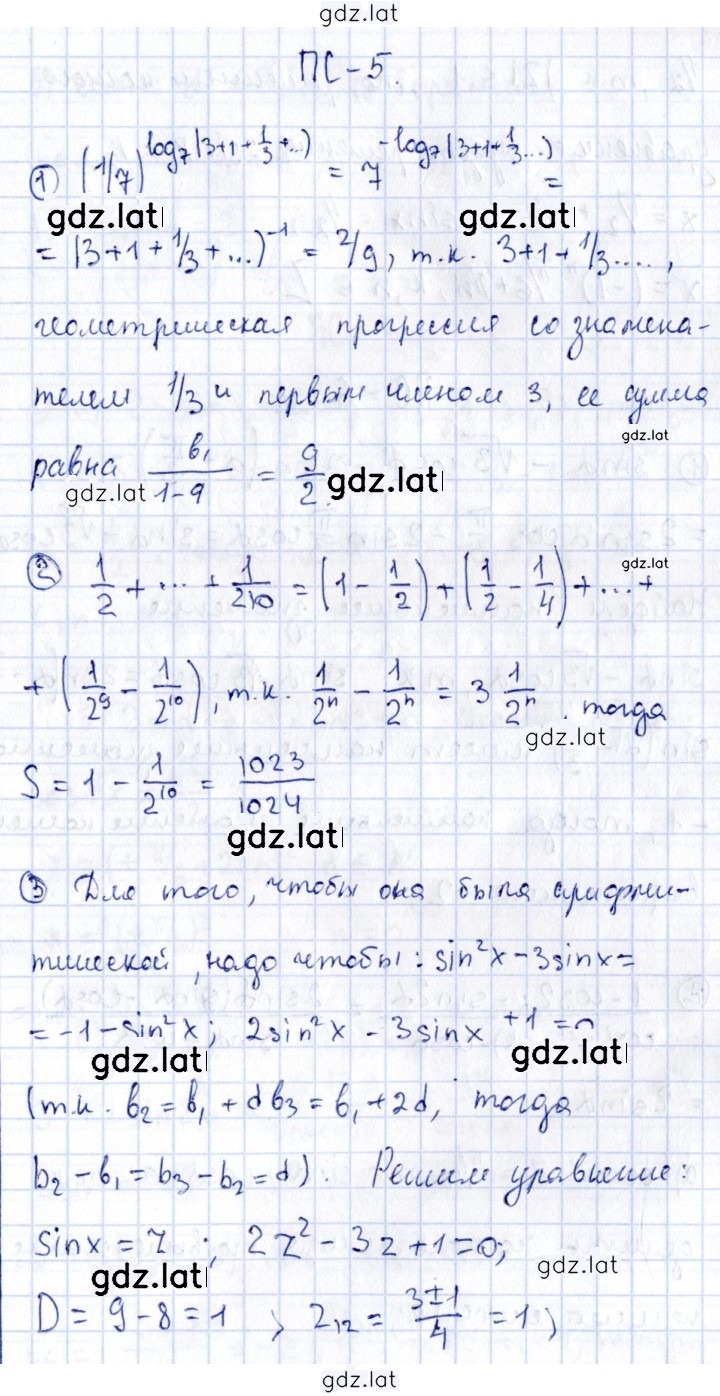 gdz.lat
ПС-5.
① (1/7)^log₇(3+1+1/3+...) = 7^-log₇(3+1+1/3...) =
gdz.lat gdz.lat
= (3+1+1/3+...)⁻¹ = 2/9, т.к. 3+1+1/3....,
геометрическая прогрессия со знамена-
телем 1/3 и первым членом 3, ее сумма
gdz.lat
равна b₁/(1-q) = 9/2.
gdz.lat gdz.lat
gdz.lat
② 1/2 + ... + 1/210 = (1 - 1/2) + (1/2 - 1/4) + ... +
+ (1/2⁹ - 1/2¹⁰), т.к. 1/2ⁿ - 1/2ⁿ = 3 1/2ⁿ. тогда
gdz.lat
S = 1 - 1/2¹⁰ = 1023/1024
gdz.lat
③ Для того, чтобы она была арифме-
тической, надо чтобы: sin²x - 3sinx =
= -1 - sin²x; 2sin²x - 3sinx +1 = 0
gdz.lat gdz.lat
(т.к. b₂ = b₁ + d b₃ = b₁ + 2d, тогда
b₂ - b₁ = b₃ - b₂ = d). Решим уравнение:
sinx = z ; 2z² - 3z + 1 = 0;
gdz.lat gdz.lat
D = 9 - 8 = 1 ; z₁₂ = (3±1)/4 = 1;
gdz.lat